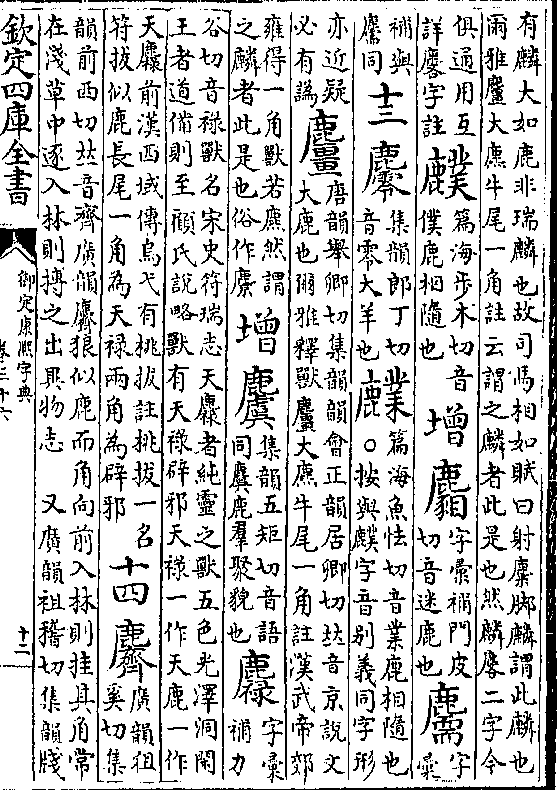 有麟大如鹿非瑞麟也故司馬相如賦曰射麋脚麟謂此麟也
爾雅麠大麃牛尾一角註云謂之麟者此是也然麟麐二字今
俱通用互
詳麐字註
篇海步木切音
僕鹿相隨也
增
字彙補門皮
切音迷鹿也
字
彙
補與
麕同
十三
集韻郎丁切
音零大羊也
篇海魚怯切音業鹿相隨也
○按與䴆字音別義同字形
亦近疑
必有譌
麠
唐韻舉卿切集韻韻會正韻居卿切𠀤音京說文
大鹿也爾雅釋獸麠大麃牛尾一角註漢武帝郊
雍得一角獸若麃然謂
之麟者此是也俗作麖
增
集韻五矩切音語
同麌鹿羣聚貌也
字彙
補力
谷切音祿獸名宋史符瑞志天䴪者純靈之獸五色光澤洞明
王者道備則至顧氏說略獸有天祿辟邪天祿一作天鹿一作
天䴪前漢西域傳烏弋有桃拔註桃拔一名
符拔似鹿長尾一角為天祿兩角為辟邪
十四
廣韻徂
奚切集
韻前西切𠀤音齊廣韻麡狼似鹿而角向前入林則挂其角常
在淺草中逐入林則搏之出異物志　又廣韻祖稽切集韻牋
欽定四庫全書
御定康熙字典
卷三十六
十二